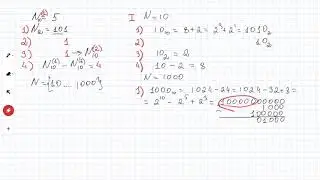 N₁₀ = 5
1) N₍₂₎ = 101
2) 1
3) 1 → N₁₀⁽²⁾
4) N₁₀⁽¹⁾ − N₁₀⁽²⁾ = 4
N = {10 .... 1000}
I N = 10
1) 10₁₀ = 8 + 2 = 2³ + 2¹ = 1010₂
2) 10₂
3) 10₂ = 2
4) 10 − 2 = 8
N = 1000
1) 1000₁₀ = 1024 − 24 = 1024 − 32 + 8 =
= 2¹⁰ − 2⁵ + 2³ = 10000000000
1000
100000
01000